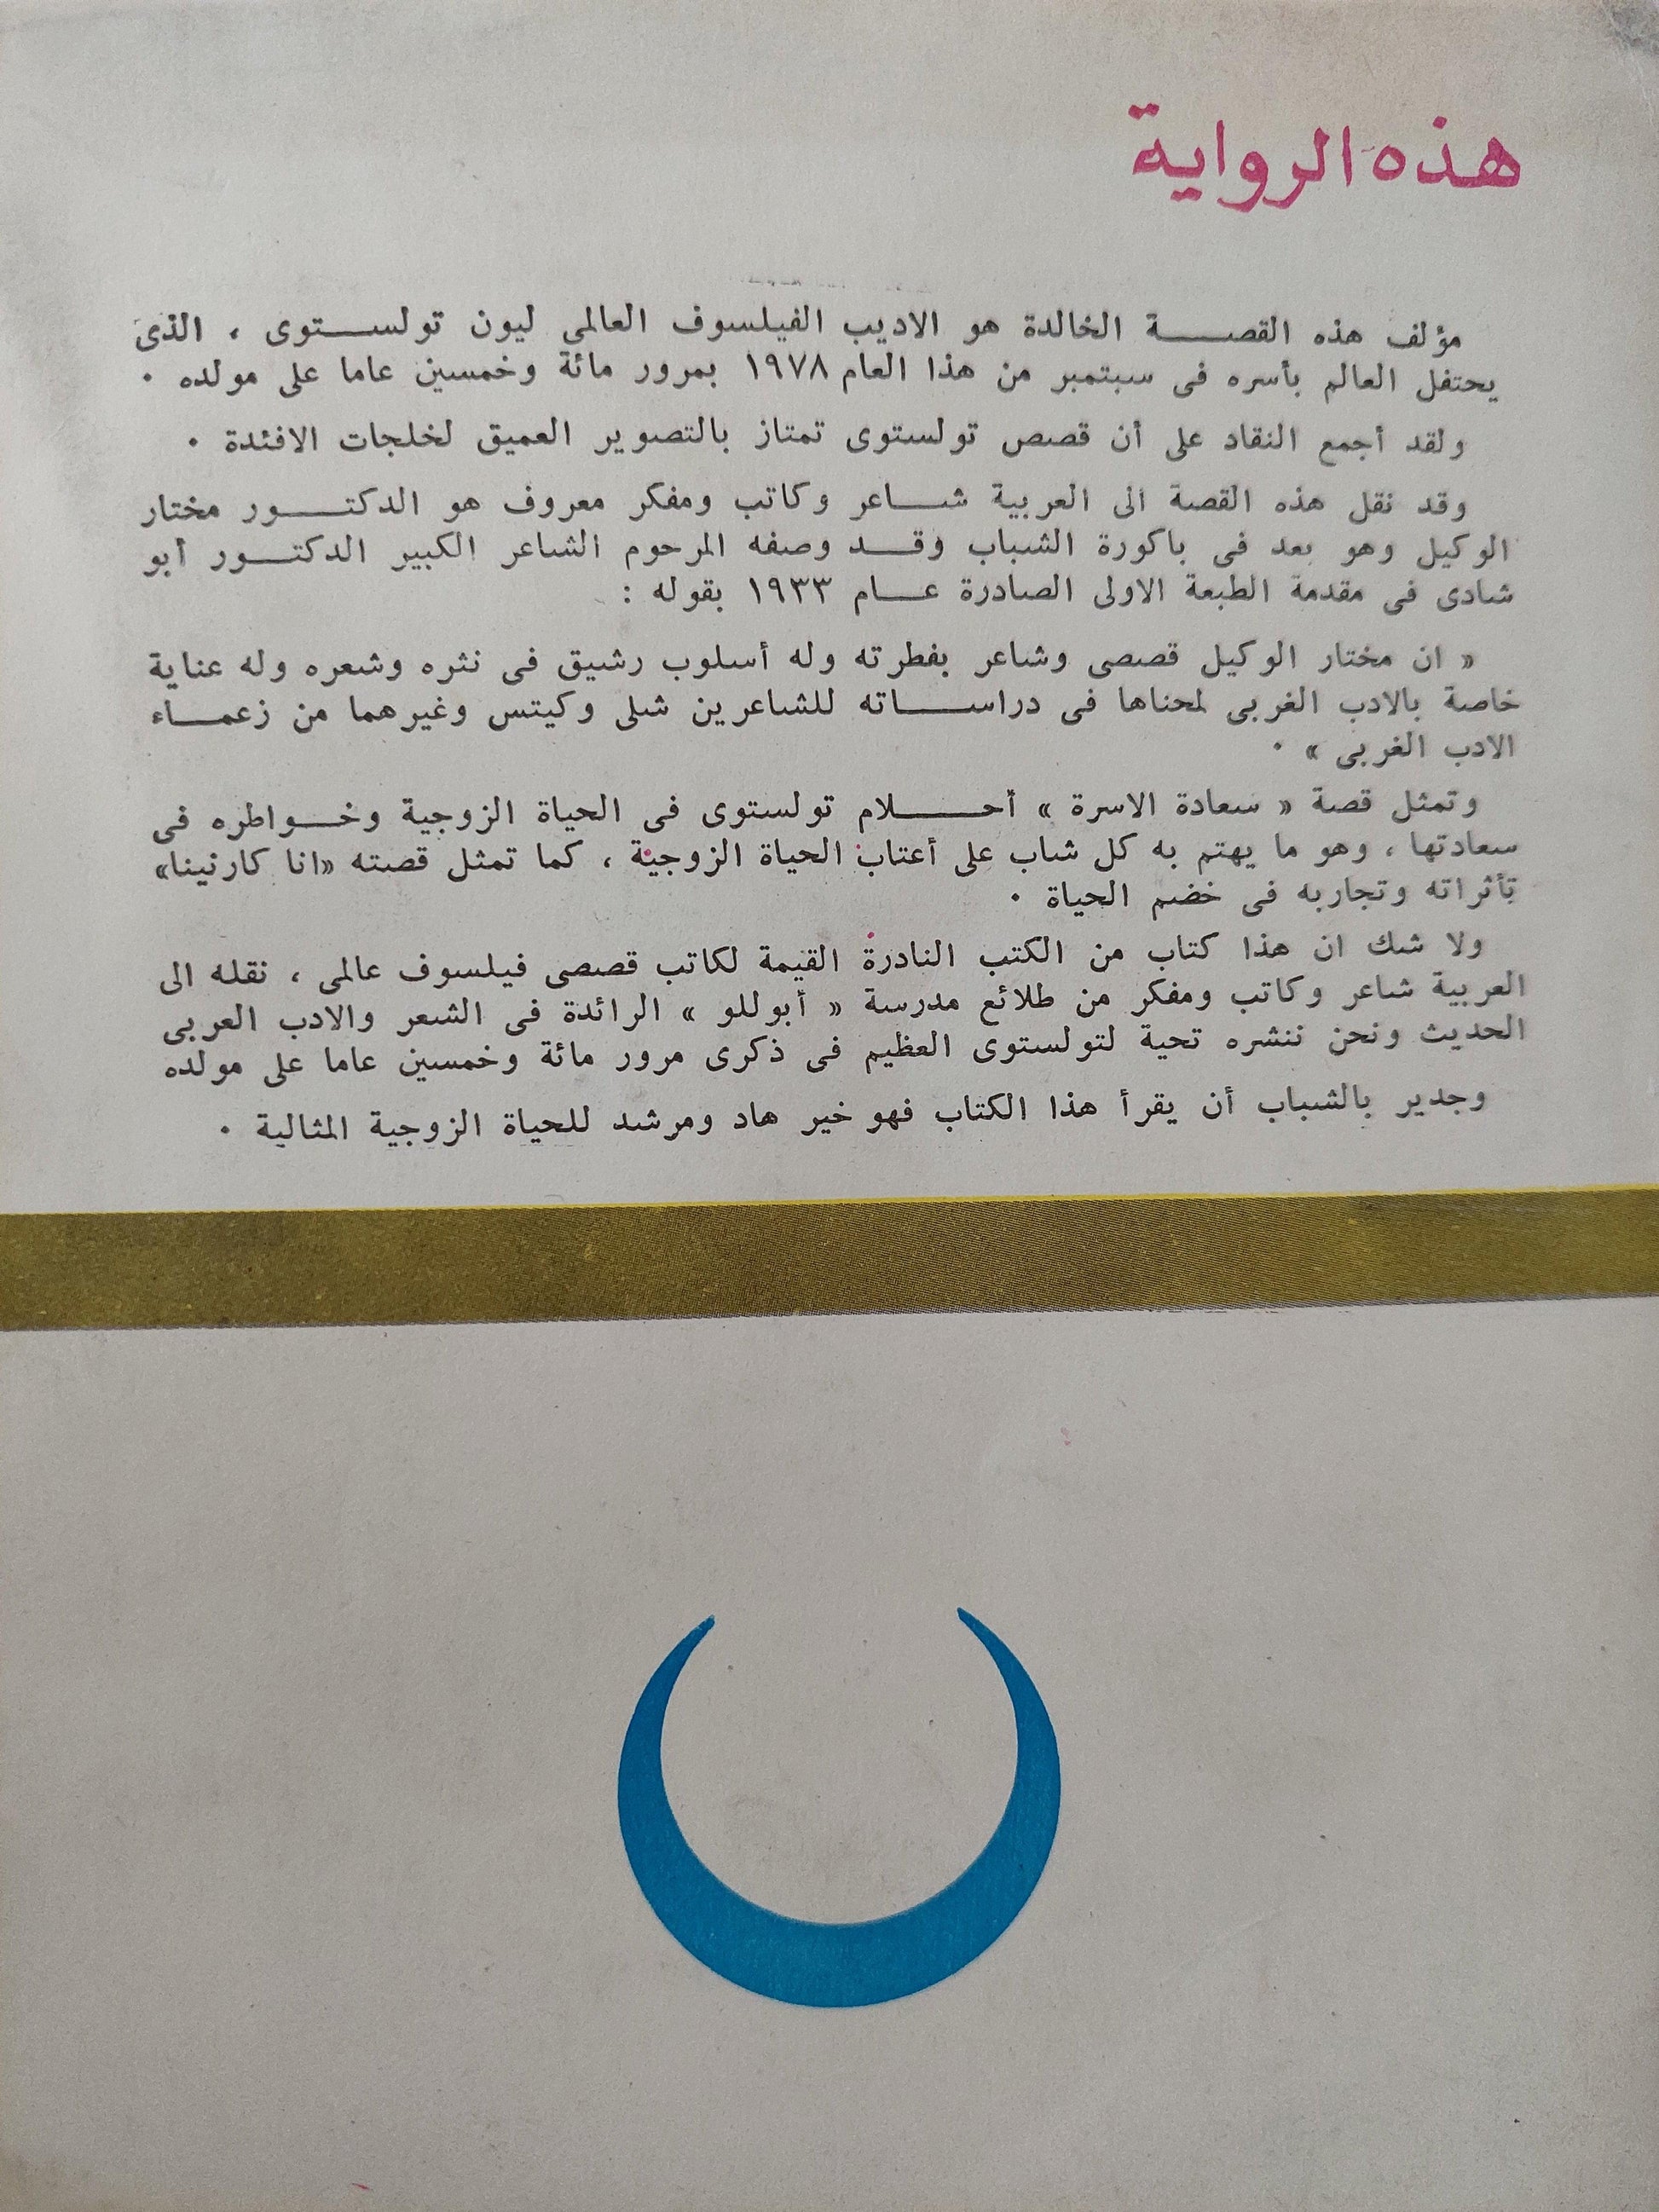 هذه الرواية
مؤلف هذه القصة الخالدة هو الاديب الفيلسوف العالمى ليون تولستوى ، الذى
يحتفل العالم بأسره فى سبتمبر من هذا العام ١٩٧٨ بمرور مائة وخمسين عاما على مولده ٠
ولقد أجمع النقاد على أن قصص تولستوى تمتاز بالتصوير العميق لخلجات الافئدة ٠
وقد نقل هذه القصة الى العربية شاعر وكاتب ومفكر معروف هو الدكتور مختار
الوكيل وهو بعد فى باكورة الشباب وقد وصفه المرحوم الشاعر الكبير الدكتور أبو
شادى فى مقدمة الطبعة الاولى الصادرة عام ١٩٣٣ بقوله :
« ان مختار الوكيل قصصى وشاعر بفطرته وله أسلوب رشيق فى نثره وشعره وله عناية
خاصة بالادب الغربى لمحناها فى دراساته للشاعرين شلى وكيتس وغيرهما من زعماء
الادب الغربى » ٠
وتمثل قصة « سعادة الاسرة » أحلام تولستوى فى الحياة الزوجية وخواطره فى
سعادتها ، وهو ما يهتم به كل شاب على أعتاب الحياة الزوجية ، كما تمثل قصته «انا كارنينا»
تأثراته وتجاربه فى خضم الحياة ٠
ولا شك ان هذا كتاب من الكتب النادرة القيمة لكاتب قصصى فيلسوف عالمى ، نقله الى
العربية شاعر وكاتب ومفكر من طلائع مدرسة « أبوللو » الرائدة فى الشعر والادب العربى
الحديث ونحن ننشره تحية لتولستوى العظيم فى ذكرى مرور مائة وخمسين عاما على مولده
وجدير بالشباب أن يقرأ هذا الكتاب فهو خير هاد ومرشد للحياة الزوجية المثالية ٠